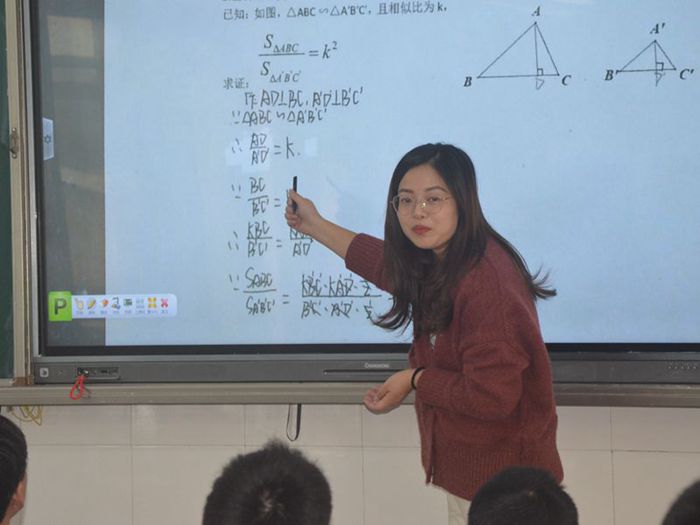 已知：如图，△ABC∽△A'B'C'，且相似比为 k，
S△ABC / S△A'B'C' = k²
求证：
作 AD⊥BC，A'D'⊥B'C'
∵△ABC∽△A'B'C'
∴ AD / A'D' = k.
∵ BC / B'C' =
∴ KBC / B'C' =
A'D'
∵ SABC / SA'B'C' = kB'C'·kA'D'·½ / B'C'·A'D'·½
A
B
D
C
A'
B'
D'
C'
P